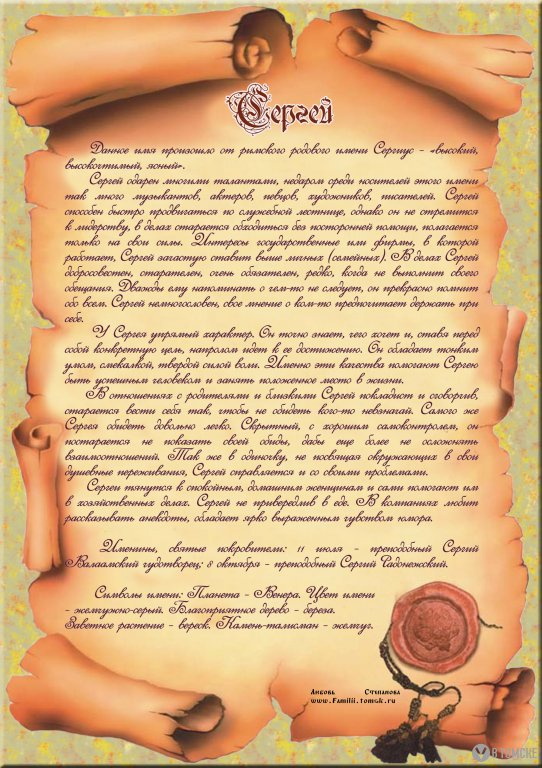 Сергей
Данное имя произошло от римского родового имени Сергиус - «высокий,
высокочтимый, ясный».
Сергей одарен многими талантами, недаром среди носителей этого имени
так много музыкантов, актеров, певцов, художников, писателей. Сергей
способен быстро продвигаться по служебной лестнице, однако он не стремится
к лидерству, в делах старается обходиться без посторонней помощи, полагается
только на свои силы. Интересы государственные или фирмы, в которой
работает, Сергей зачастую ставит выше личных (семейных). В делах Сергей
добросовестен, старателен, очень обязателен, редко, когда не выполнит своего
обещания. Дважды ему напоминать о чем-то не следует, он прекрасно помнит
обо всем. Сергей немногословен, свое мнение о ком-то предпочитает держать при
себе.
У Сергея упрямый характер. Он точно знает, чего хочет и, ставя перед
собой конкретную цель, напролом идет к ее достижению. Он обладает тонким
умом, смекалкой, твердой силой воли. Именно эти качества помогают Сергею
быть успешным человеком и занять положенное место в жизни.
В отношениях с родителями и близкими Сергей покладист и сговорчив,
старается вести себя так, чтобы не обидеть кого-то невзначай. Самого же
Сергея обидеть довольно легко. Скрытный, с хорошим самоконтролем, он
постарается не показать своей обиды, дабы еще более не осложнять
взаимоотношений. Так же в одиночку, не посвящая окружающих в свои
душевные переживания, Сергей справляется и со своими проблемами.
Сергеи тянутся к спокойным, домашним женщинам и сами помогают им
в хозяйственных делах. Сергей не привередлив в еде. В компаниях любит
рассказывать анекдоты, обладает ярко выраженным чувством юмора.
Именины, святые покровители: 11 июля - преподобный Сергий
Валаамский чудотворец; 8 октября - преподобный Сергий Радонежский.
Символы имени: Планета - Венера. Цвет имени
- жемчужно-серый. Благоприятное дерево - береза.
Заветное растение - вереск. Камень-талисман - жемчуг.
Любовь Степанова
www.Familii.tomsk.ru
В ТОМСКЕ